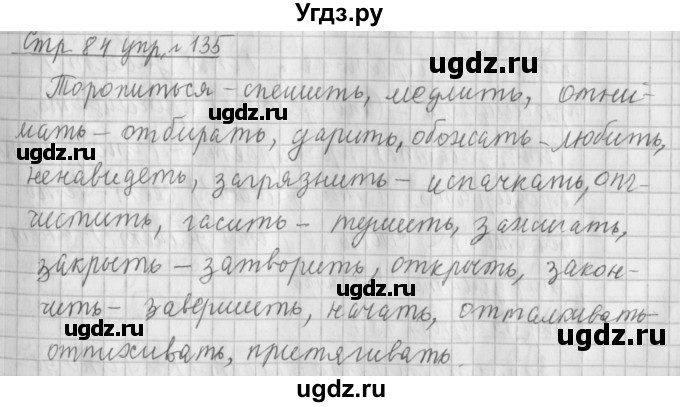 Угдз.ру
Стр 84 упр. 135
Торопиться – спешить, медлить, отни-
мать – отбирать, дарить, обожать – любить,
ненавидеть, загрязнить – испачкать, от-
чистить, гасить – тушить, зажигать,
закрыть – затворить, открыть, закон-
чить – завершить, начать, отталкивать
отпихивать, притягивать.
ugdz.ru
ugdz.ru
ugdz.ru
ugdz.ru
ugdz.ru
ugdz.ru
ugdz.ru
ugdz.ru
ugdz.ru
ugdz.ru
ugdz.ru